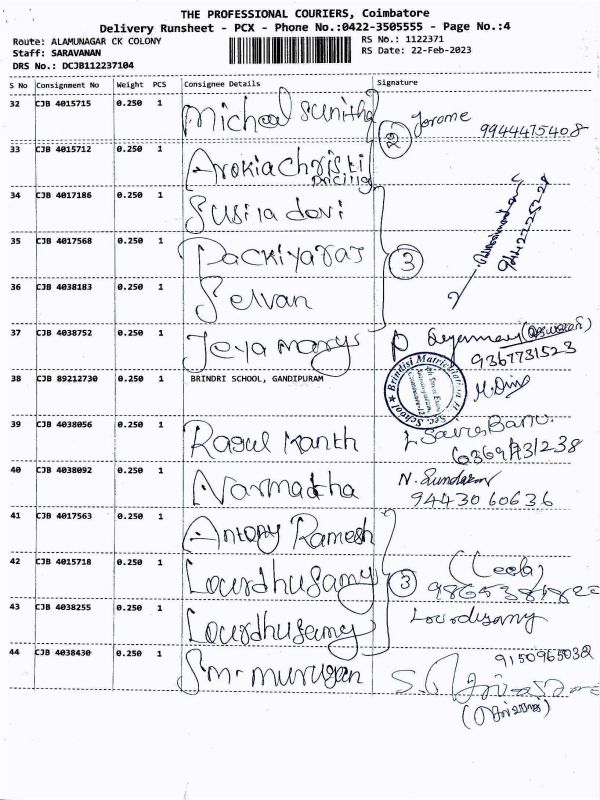 THE PROFESSIONAL COURIERS, Coimbatore
Delivery Runsheet - PCX - Phone No.:0422-3505555 - Page No.:4
Route: ALAMUNAGAR CK COLONY
RS No.: 1122371
Staff: SARAVANAN
RS Date: 22-Feb-2023
DRS No.: DCJB112237104
S No Consignment No Weight PCS Consignee Details Signature
32 CJB 4015715 0.250 1 Michael Sunitha Jerome 9944475408
2
33 CJB 4015712 0.250 1 Arokia Christi
34 CJB 4017186 0.250 1 Susila devi
9442225228
35 CJB 4017568 0.250 1 Packiyaraj 3
36 CJB 4038183 0.250 1 Selvan
37 CJB 4038752 0.250 1 Jeya marys
9367731523
38 CJB 89212730 0.250 1 BRINDRI SCHOOL, GANDIPURAM
Brindisi Matriculation Hr. Sec. School
39 CJB 4038056 0.250 1 Rasul Kanth
6369731238
40 CJB 4038092 0.250 1 Narmadha N. Sundaram
9443060636
41 CJB 4017563 0.250 1 Antony Ramesh
42 CJB 4015718 0.250 1 Lourdhusamy 3 (Leela)
43 CJB 4038255 0.250 1 Lourdhusamy
44 CJB 4038430 0.250 1 Sm. murugan 9150965032